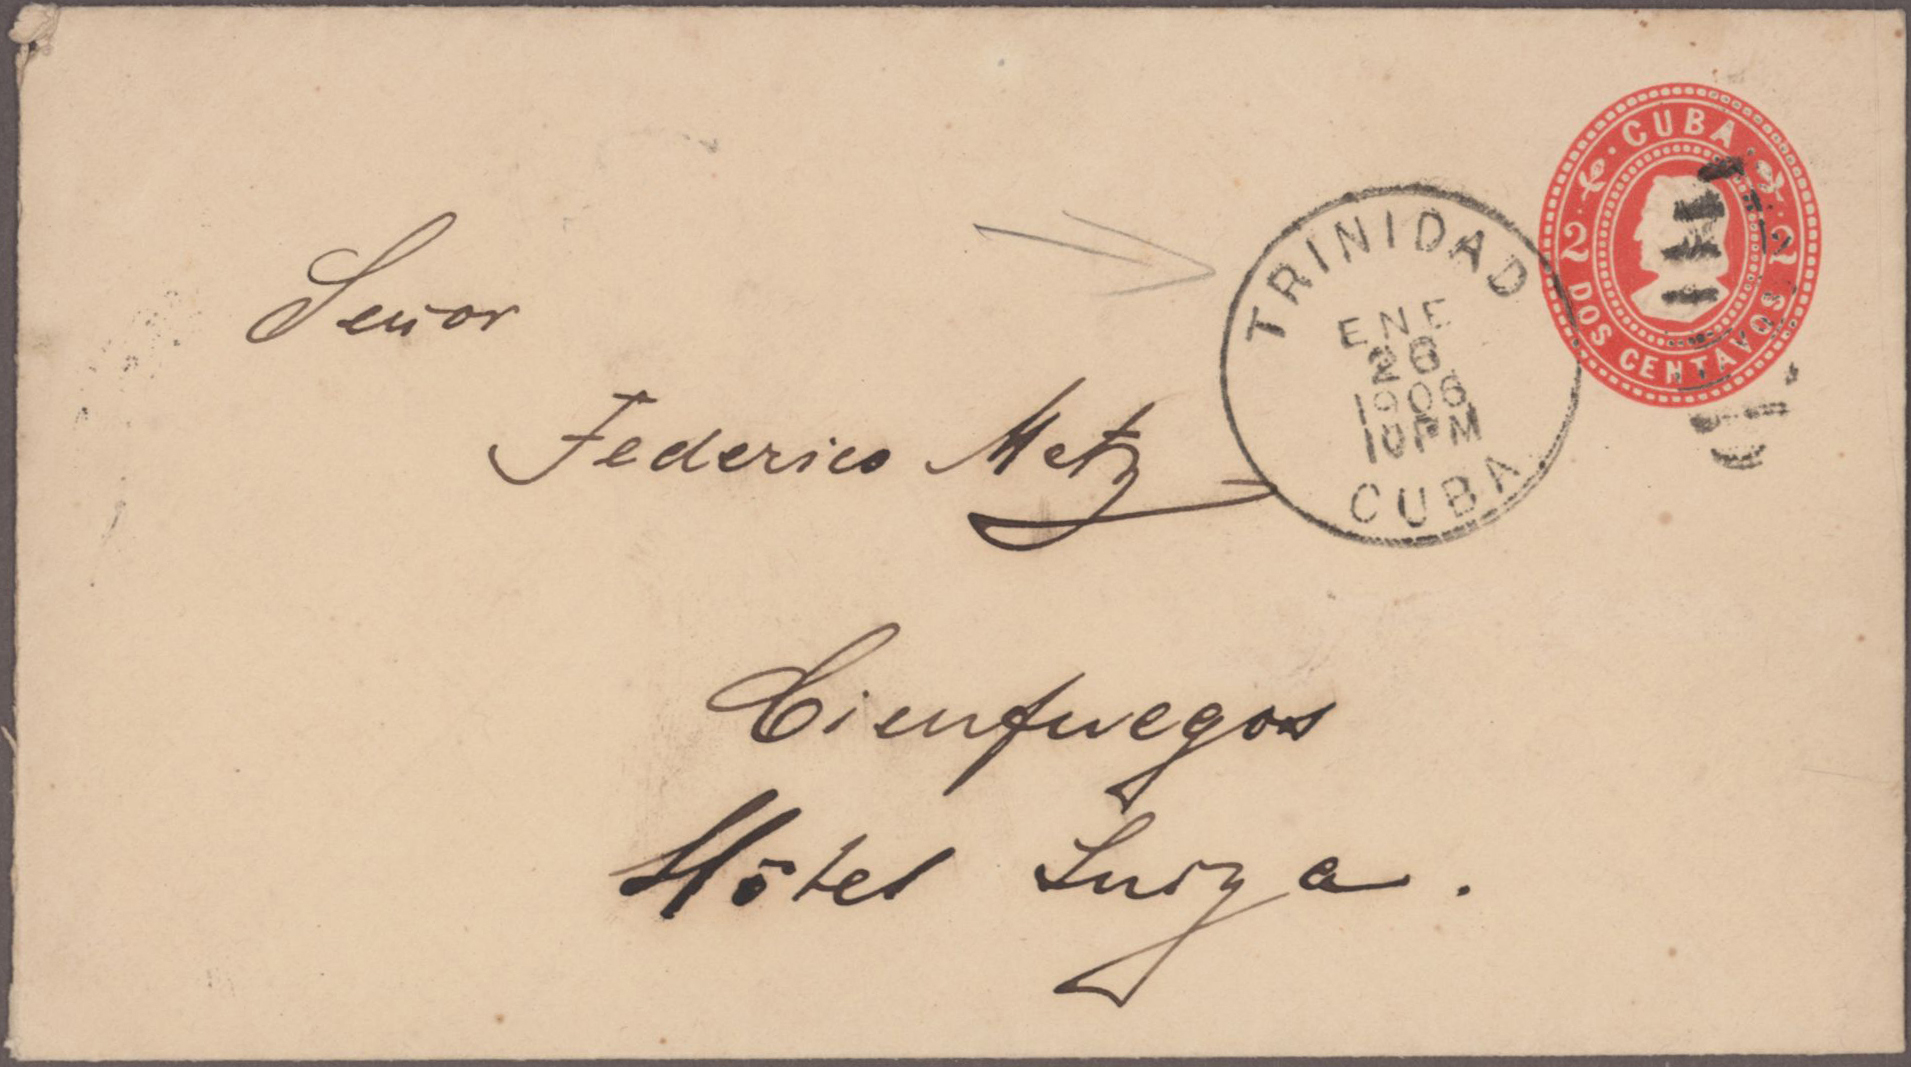 CUBA
2 2
DOS CENTAVOS
TRINIDAD
ENE
28
1906
10PM
CUBA
Señor
Federico Metz
Cienfuegos
Hôtel Suiza.